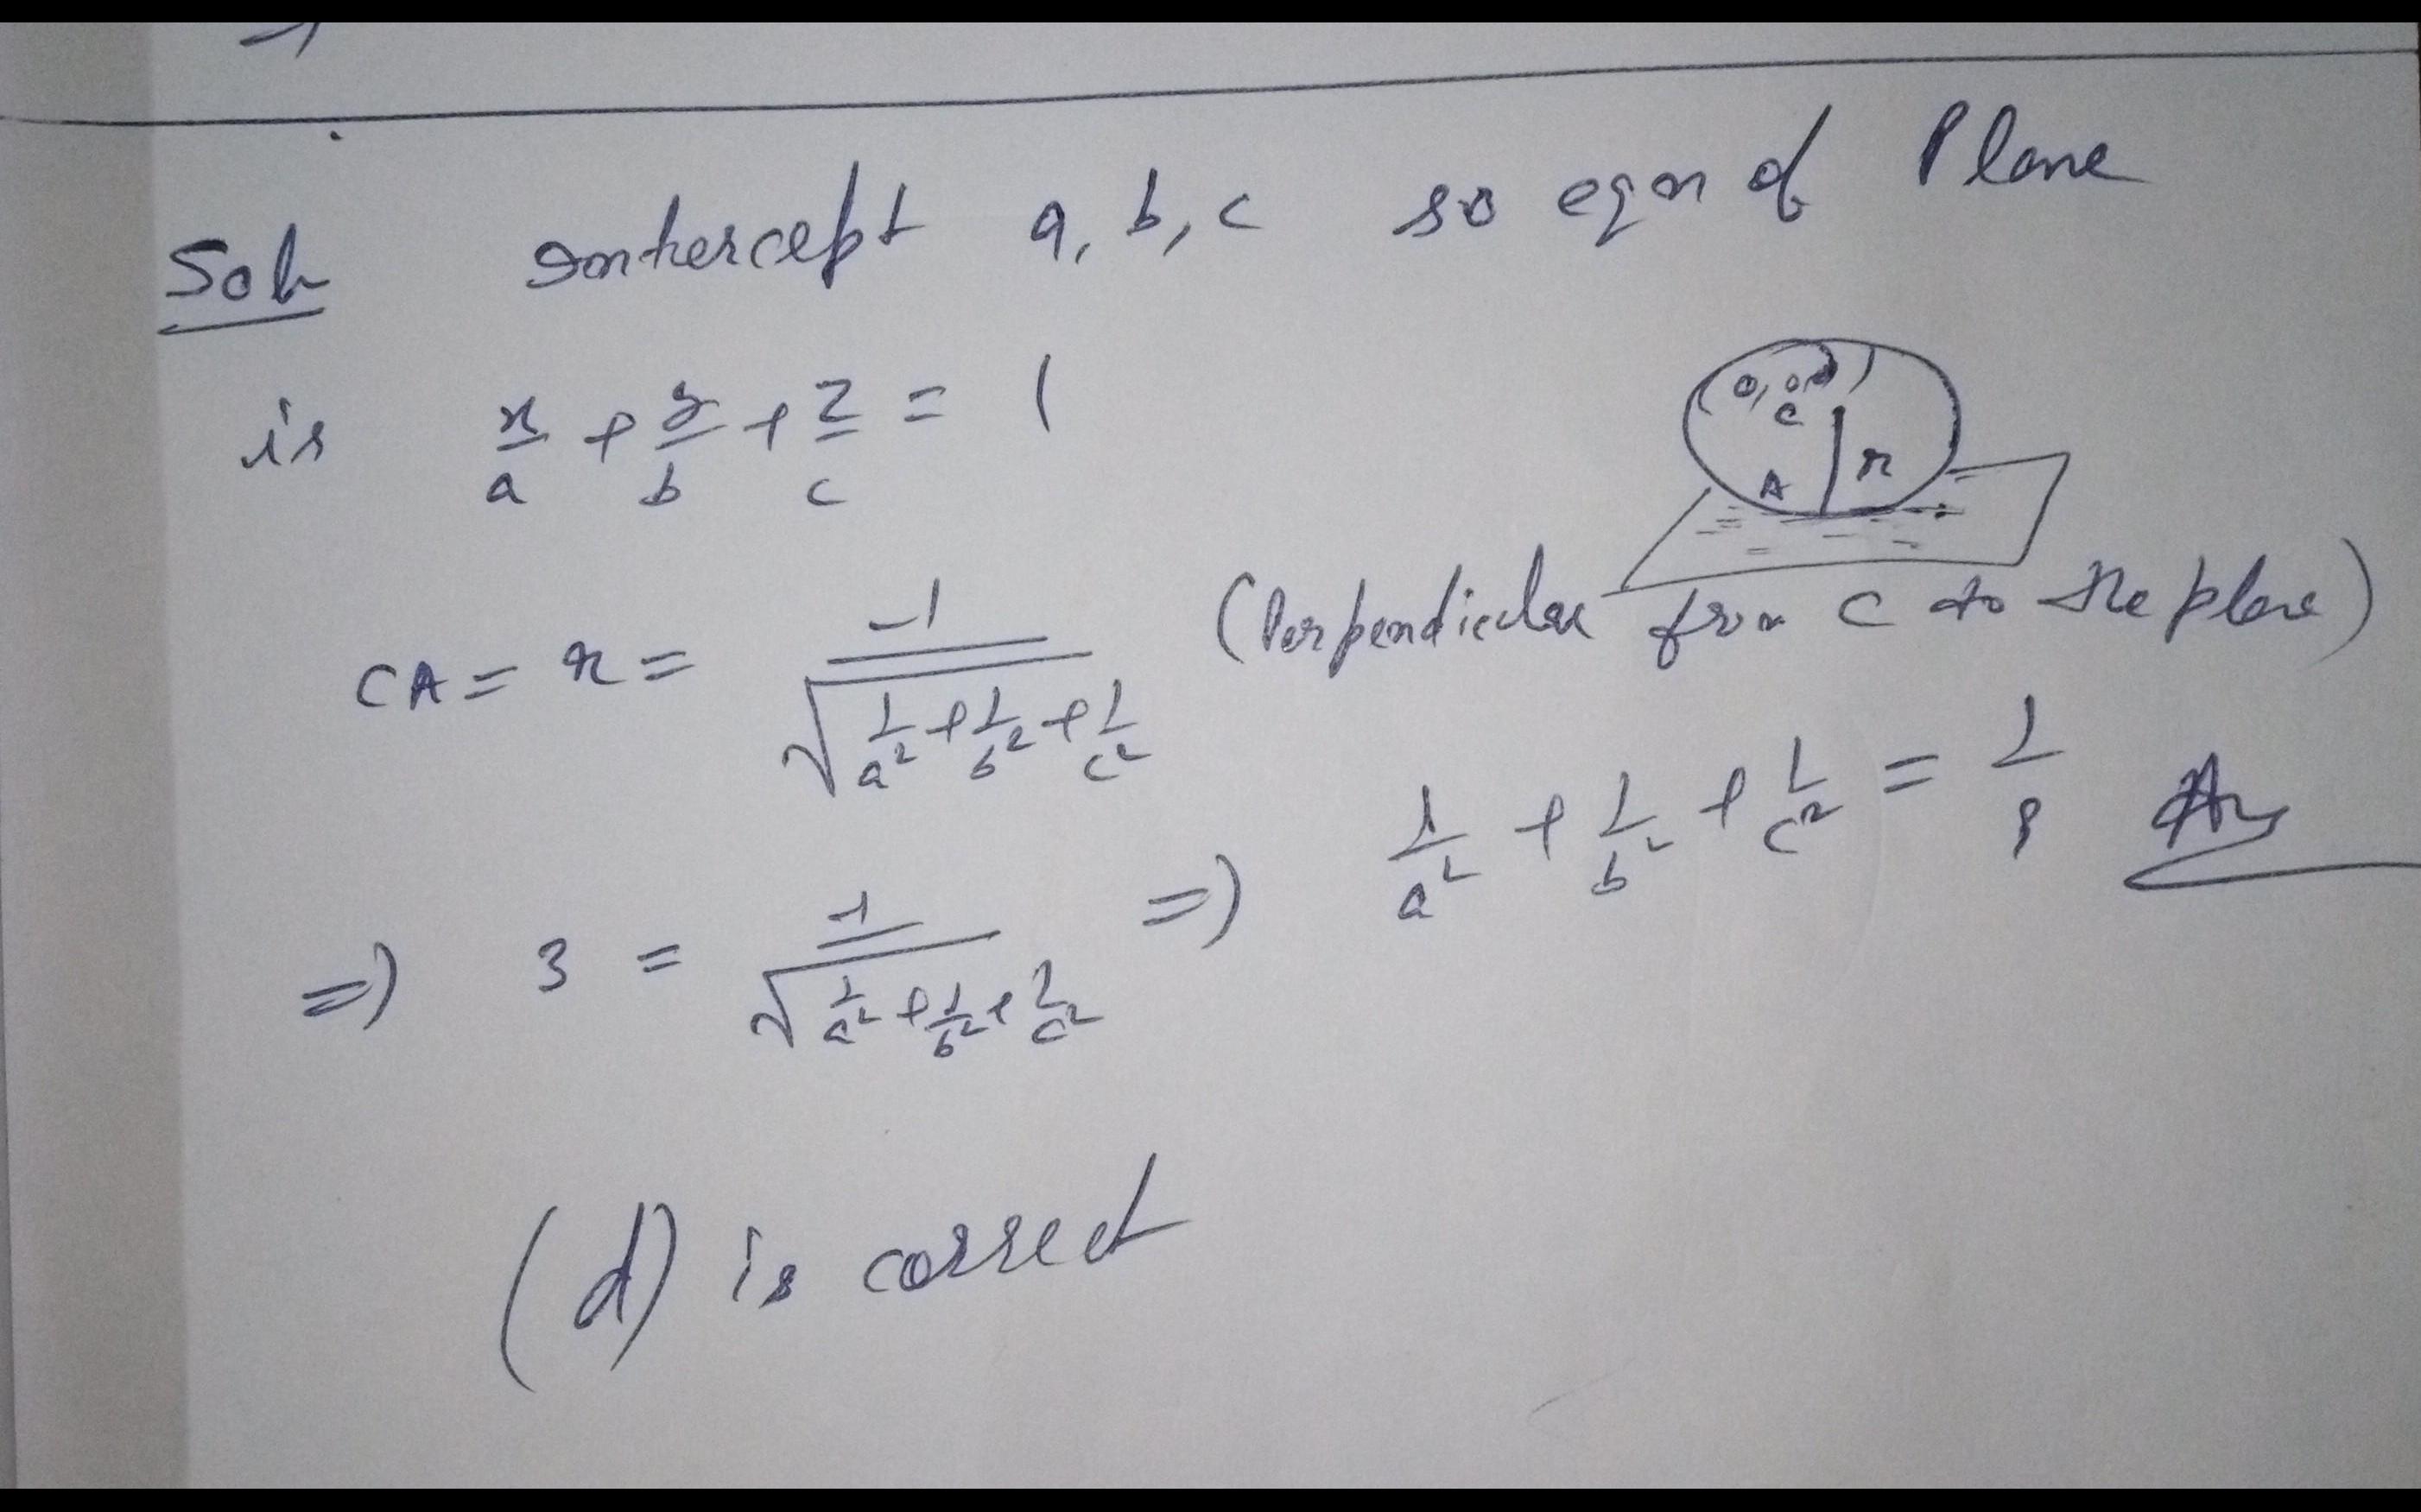 Soln Intercept a, b, c so eqn of Plane
is x/a + y/b + z/c = 1
(0, 0, 0)
C
A r
CA = r = -1/√(1/a² + 1/b² + 1/c²) (Perpendicular from C to the plane)
=> 3 = -1/√(1/a² + 1/b² + 1/c²) => 1/a² + 1/b² + 1/c² = 1/9 Ans
(d) is correct